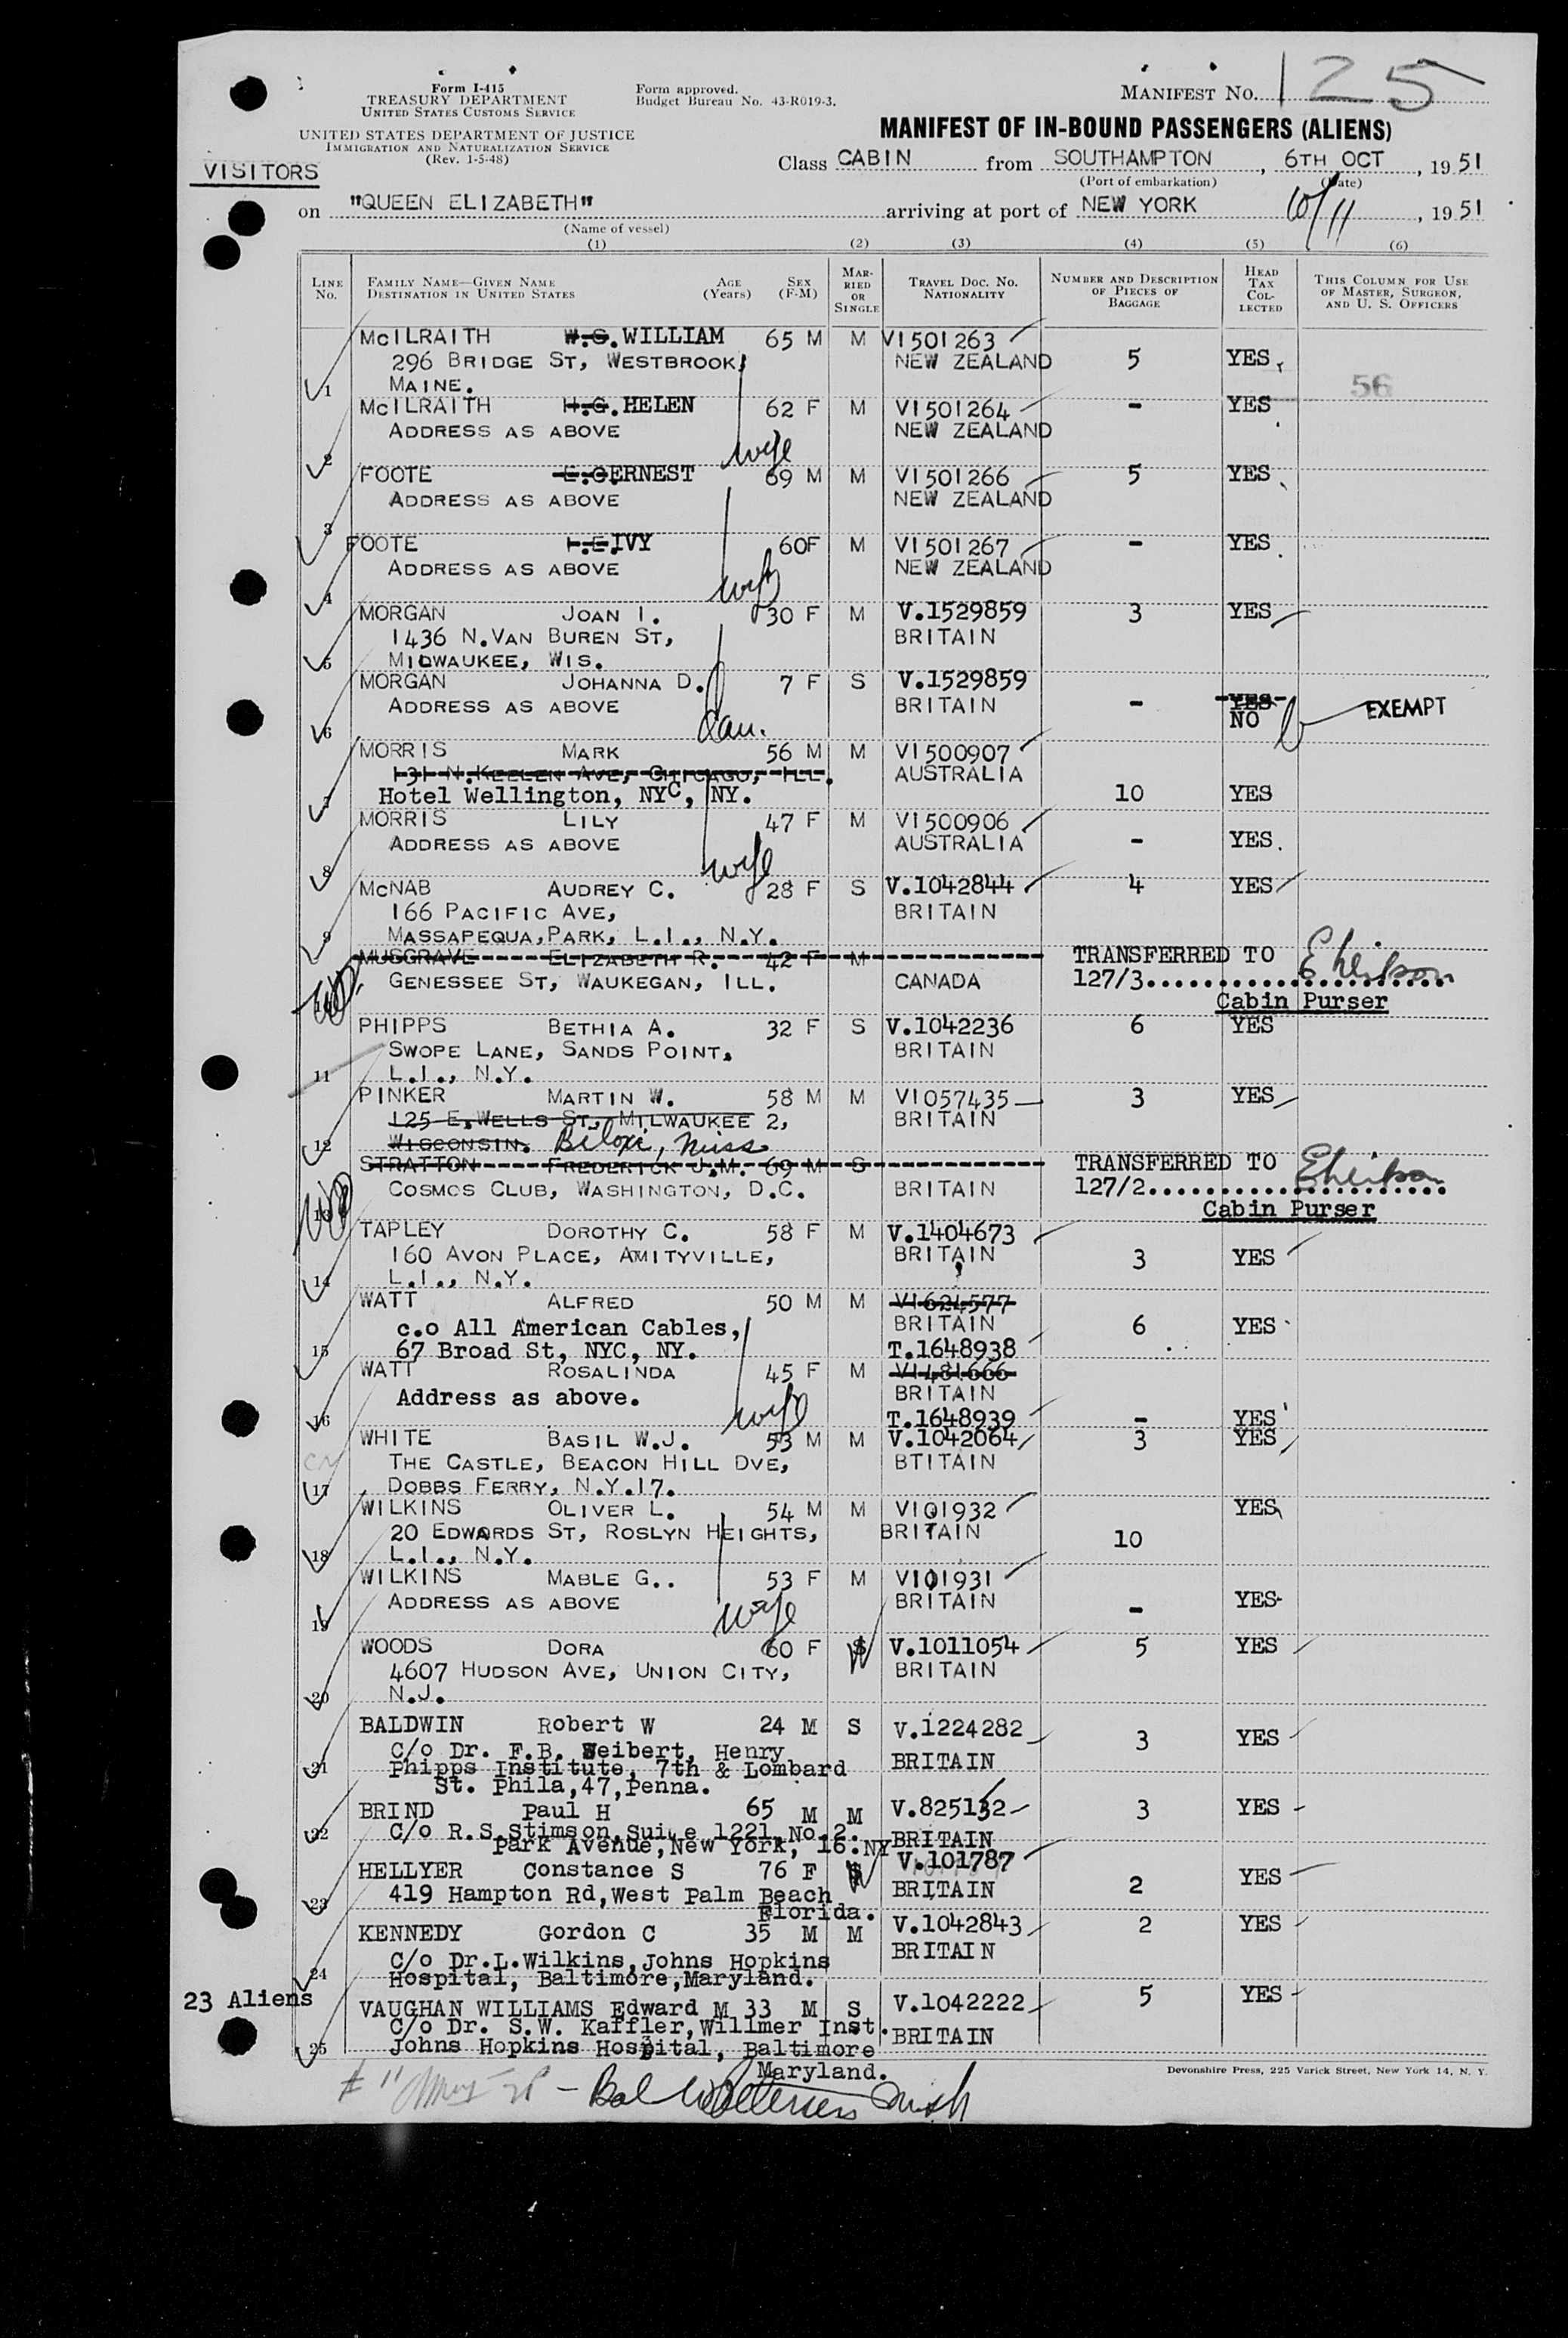 Form I-415
TREASURY DEPARTMENT
UNITED STATES CUSTOMS SERVICE
UNITED STATES DEPARTMENT OF JUSTICE
IMMIGRATION AND NATURALIZATION SERVICE
(Rev. 1-5-48)
Form approved.
Budget Bureau No. 43-R019-3.
MANIFEST NO. 125
MANIFEST OF IN-BOUND PASSENGERS (ALIENS)
VISITORS
Class CABIN from SOUTHAMPTON, 6TH OCT, 1951
(Port of embarkation) (Date)
on "QUEEN ELIZABETH" arriving at port of NEW YORK 10/11, 1951
(Name of vessel)
(1) (2) (3) (4) (5) (6)
LINE NO.
FAMILY NAME—GIVEN NAME
DESTINATION IN UNITED STATES
AGE (Years)
SEX (F-M)
MARRIED OR SINGLE
TRAVEL DOC. NO.
NATIONALITY
NUMBER AND DESCRIPTION OF PIECES OF BAGGAGE
HEAD TAX COLLECTED
THIS COLUMN FOR USE OF MASTER, SURGEON, AND U. S. OFFICERS
McILRAITH W.G. WILLIAM 65 M M VI501263
296 BRIDGE ST, WESTBROOK, NEW ZEALAND 5 YES
1 MAINE. 56
McILRAITH H.G. HELEN 62 F M VI501264 - YES
ADDRESS AS ABOVE NEW ZEALAND
2 wife
FOOTE E.G ERNEST 69 M M VI501266 5 YES
ADDRESS AS ABOVE NEW ZEALAND
3
FOOTE I.E. IVY 60F M VI501267 - YES
ADDRESS AS ABOVE NEW ZEALAND
4 wife
MORGAN JOAN I. 30 F M V.1529859 3 YES
1436 N.VAN BUREN ST, BRITAIN
5 MILWAUKEE, WIS.
MORGAN JOHANNA D. 7 F S V.1529859
ADDRESS AS ABOVE BRITAIN - YES NO EXEMPT
6 dau.
MORRIS MARK 56 M M VI500907
131 N.KEELER AVE, CHICAGO, ILL. AUSTRALIA
7 Hotel Wellington, NYC, NY. 10 YES
MORRIS LILY 47 F M VI500906
ADDRESS AS ABOVE AUSTRALIA - YES.
8 wife
McNAB AUDREY C. 28 F S V.1042844 4 YES
166 PACIFIC AVE, BRITAIN
9 MASSAPEQUA,PARK, L.I., N.Y.
MUSGRAVE ELIZABETH R. 42 F M TRANSFERRED TO
GENESSEE ST, WAUKEGAN, ILL. CANADA 127/3
Cabin Purser
PHIPPS BETHIA A. 32 F S V.1042236 6 YES
SWOPE LANE, SANDS POINT, BRITAIN
11 L.I., N.Y.
PINKER MARTIN W. 58 M M VI057435 3 YES
125 E.WELLS ST, MILWAUKEE 2, BRITAIN
12 WISCONSIN. Biloxi, Miss
STRATTON FREDERICK J.M. 69 M S TRANSFERRED TO
COSMOS CLUB, WASHINGTON, D.C. BRITAIN 127/2
13 Cabin Purser
TAPLEY DOROTHY C. 58 F M V.1404673
160 AVON PLACE, AMITYVILLE, BRITAIN 3 YES
14 L.I., N.Y.
WATT ALFRED 50 M M VI624577
c.o All American Cables, BRITAIN 6 YES
15 67 Broad St, NYC, NY. T.1648938
WATT ROSALINDA 45 F M VI481666
Address as above. BRITAIN
16 wife T.1648939 - YES
WHITE BASIL W.J. 53 M M V.1042064 3 YES
THE CASTLE, BEACON HILL DVE, BTITAIN
17 DOBBS FERRY, N.Y.17.
WILKINS OLIVER L. 54 M M VI01932 YES
20 EDWARDS ST, ROSLYN HEIGHTS, BRITAIN 10
18 L.I., N.Y.
WILKINS MABLE G.. 53 F M VI01931
ADDRESS AS ABOVE BRITAIN - YES
19 wife
WOODS DORA 60 F S W V.1011054 5 YES
4607 HUDSON AVE, UNION CITY, BRITAIN
20 N.J.
BALDWIN Robert W 24 M S V.1224282 3 YES
C/o Dr. F.B. Seibert, Henry BRITAIN
21 Phipps Institute, 7th & Lombard
St. Phila,47,Penna.
BRIND Paul H 65 M M V.825132 3 YES
22 C/o R.S.Stimson,Suite 1221,No.2. BRITAIN
Park Avenue,New York, 16.NY
HELLYER Constance S 76 F S W V.101787 YES
23 419 Hampton Rd,West Palm Beach BRITAIN 2
Florida.
KENNEDY Gordon C 35 M M V.1042843 2 YES
C/o Dr.L.Wilkins,Johns Hopkins BRITAIN
24 Hospital, Baltimore,Maryland.
23 Aliens
VAUGHAN WILLIAMS Edward M 33 M S V.1042222 5 YES
C/o Dr. S.W. Kaffler,Willmer Inst. BRITAIN
25 Johns Hopkins Hospital, Baltimore
Maryland.
Devonshire Press, 225 Varick Street, New York 14, N. Y.